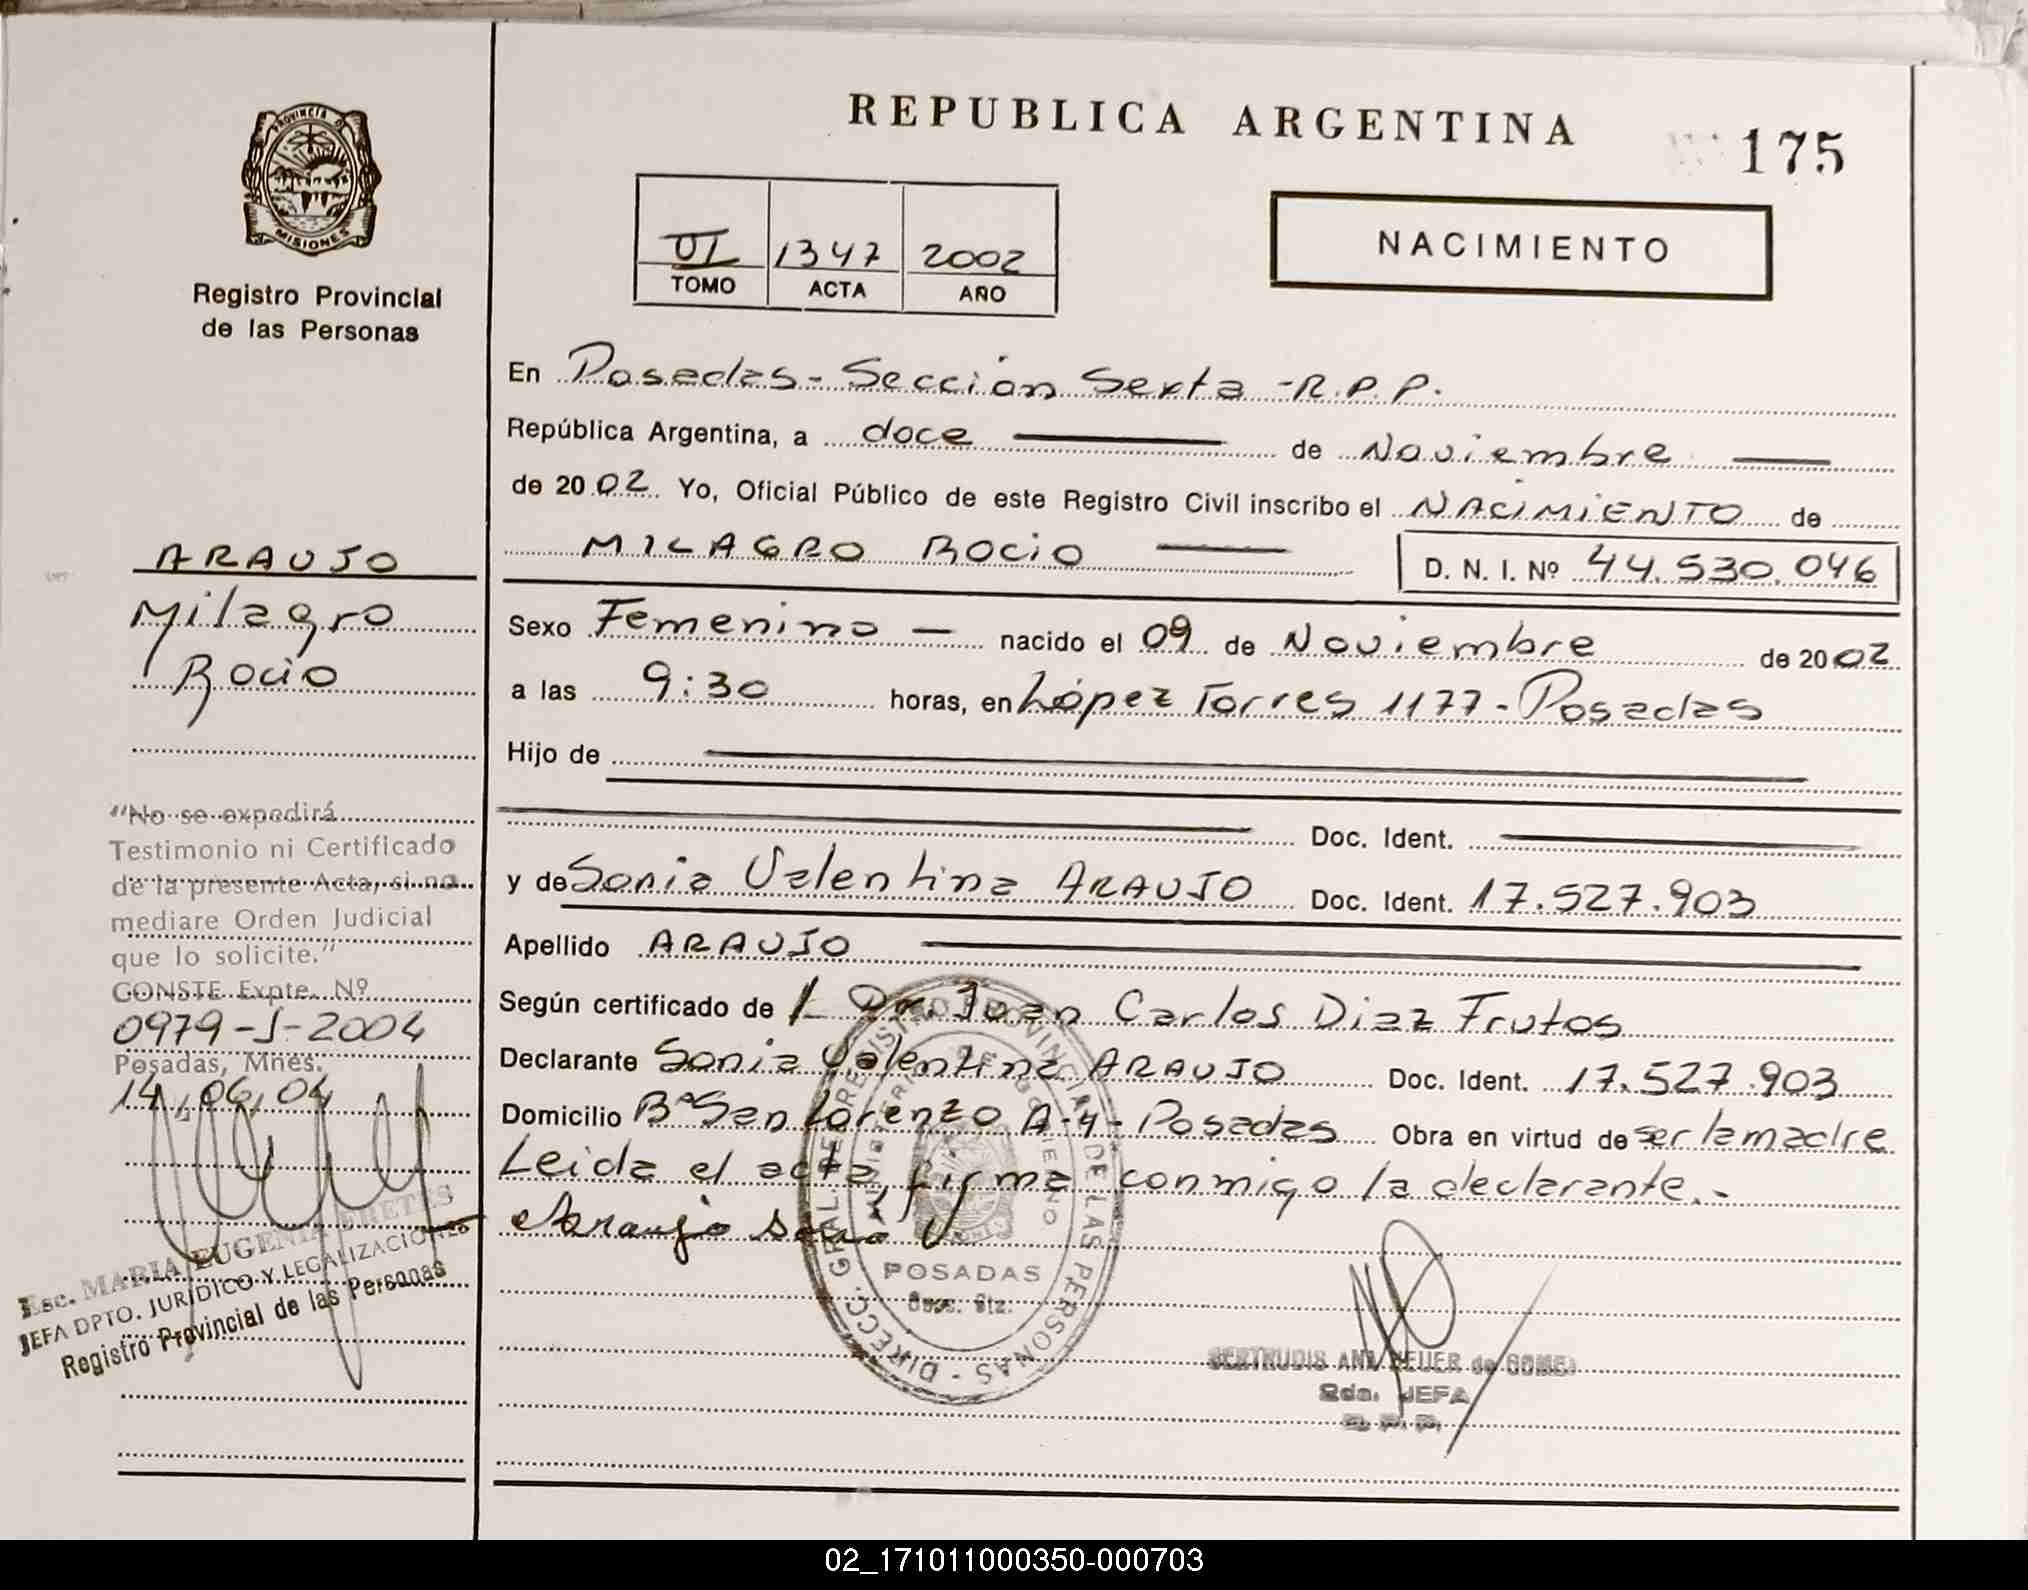 REPUBLICA ARGENTINA
175
PROVINCIA DE
MISIONES
Registro Provincial
de las Personas
VI 1347 2002
TOMO ACTA AÑO
NACIMIENTO
En Posadas - Sección Sexta - R.P.P.
República Argentina, a doce de Noviembre
de 2002 Yo, Oficial Público de este Registro Civil inscribo el NACIMIENTO de
MILAGRO ROCIO D. N. I. Nº 44.530.046
Sexo Femenino nacido el 09 de Noviembre de 2002
a las 9:30 horas, en López Torres 1177 - Posadas
Hijo de
Doc. Ident.
y de Sonia Valentina ARAUJO Doc. Ident. 17.527.903
Apellido ARAUJO
Según certificado de Dr. Juan Carlos Diaz Frutos
Declarante Sonia Valentina ARAUJO Doc. Ident. 17.527.903
Domicilio Bº San Lorenzo A-4 - Posadas Obra en virtud de ser la madre
Leida el acta, firma conmigo la declarante.-
Araujo
ARAUJO
Milagro
Rocio
"No se expedirá
Testimonio ni Certificado
de la presente Acta, si no
mediare Orden Judicial
que lo solicite."
CONSTE Expte. Nº
0979-J-2004
Posadas, Mnes.
14,06,04
Esc. MARIA EUGENIA
JEFA DPTO. JURIDICO Y LEGALIZACIONES
Registro Provincial de las Personas
DIRECC. GRAL. DE REGISTRO PROVINCIAL DE LAS PERSONAS
POSADAS
GERTRUDIS ANA de GOMEZ
2da. JEFA
R. P. P.
02_171011000350-000703